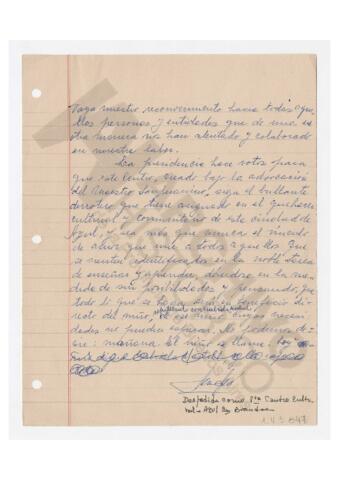 Vaya nuestro reconocimiento hacia todas aque-
llas personas y entidades que de una u
otra manera nos han alentado y colaborado
en nuestra labor.
La presidencia hace votos para
que este Centro, creado bajo la advocación
del Maestro Sanjuanino, siga el brillante
derrotero que tiene asignado en el quehacer
cultural y comunitario de esta ciudad de
Azul, y sea más que nunca el vínculo
de amor que une a todos aquellos que
se sienten identificados en la noble tarea
de enseñar y aprender, dándose en la me-
dida de sus posibilidades y pensando que
todo lo que se haga será en beneficio di-
recto del niño,
dades no pueden esperar. No podemos de-
cir: mañana. El niño se llama: hoy
Despedida como Pta Centro Cultu-
ral Azul
1.4.3.047